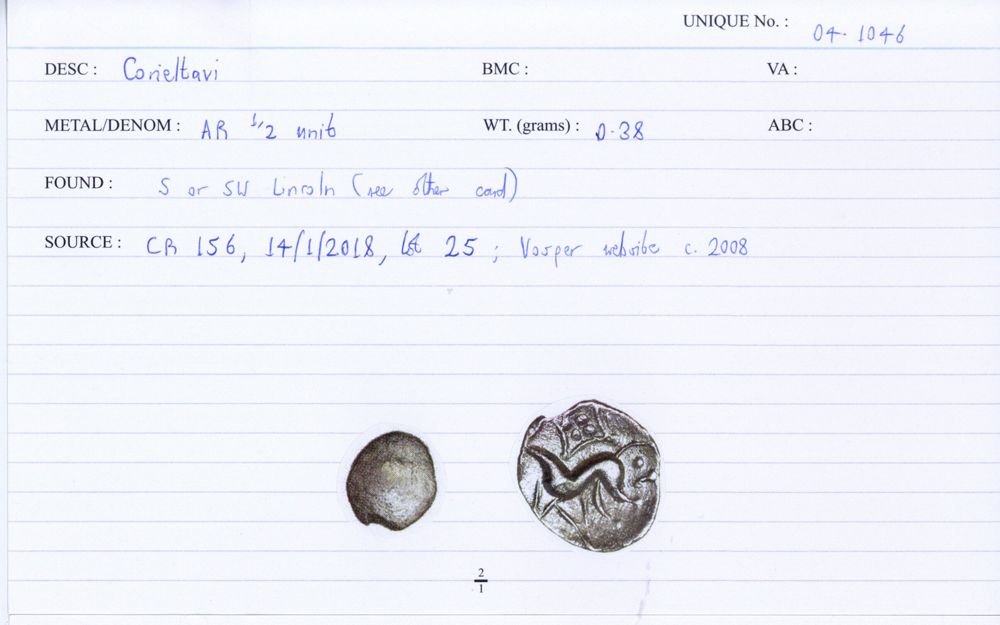 UNIQUE No. : 04-1046
DESC : Corieltavi BMC : VA :
METAL/DENOM : AR 1/2 unit WT. (grams) : 0.38 ABC :
FOUND : S or SW Lincoln (see other card)
SOURCE : CR 156, 14/1/2018, lot 25 ; Vosper website c. 2008
2
1